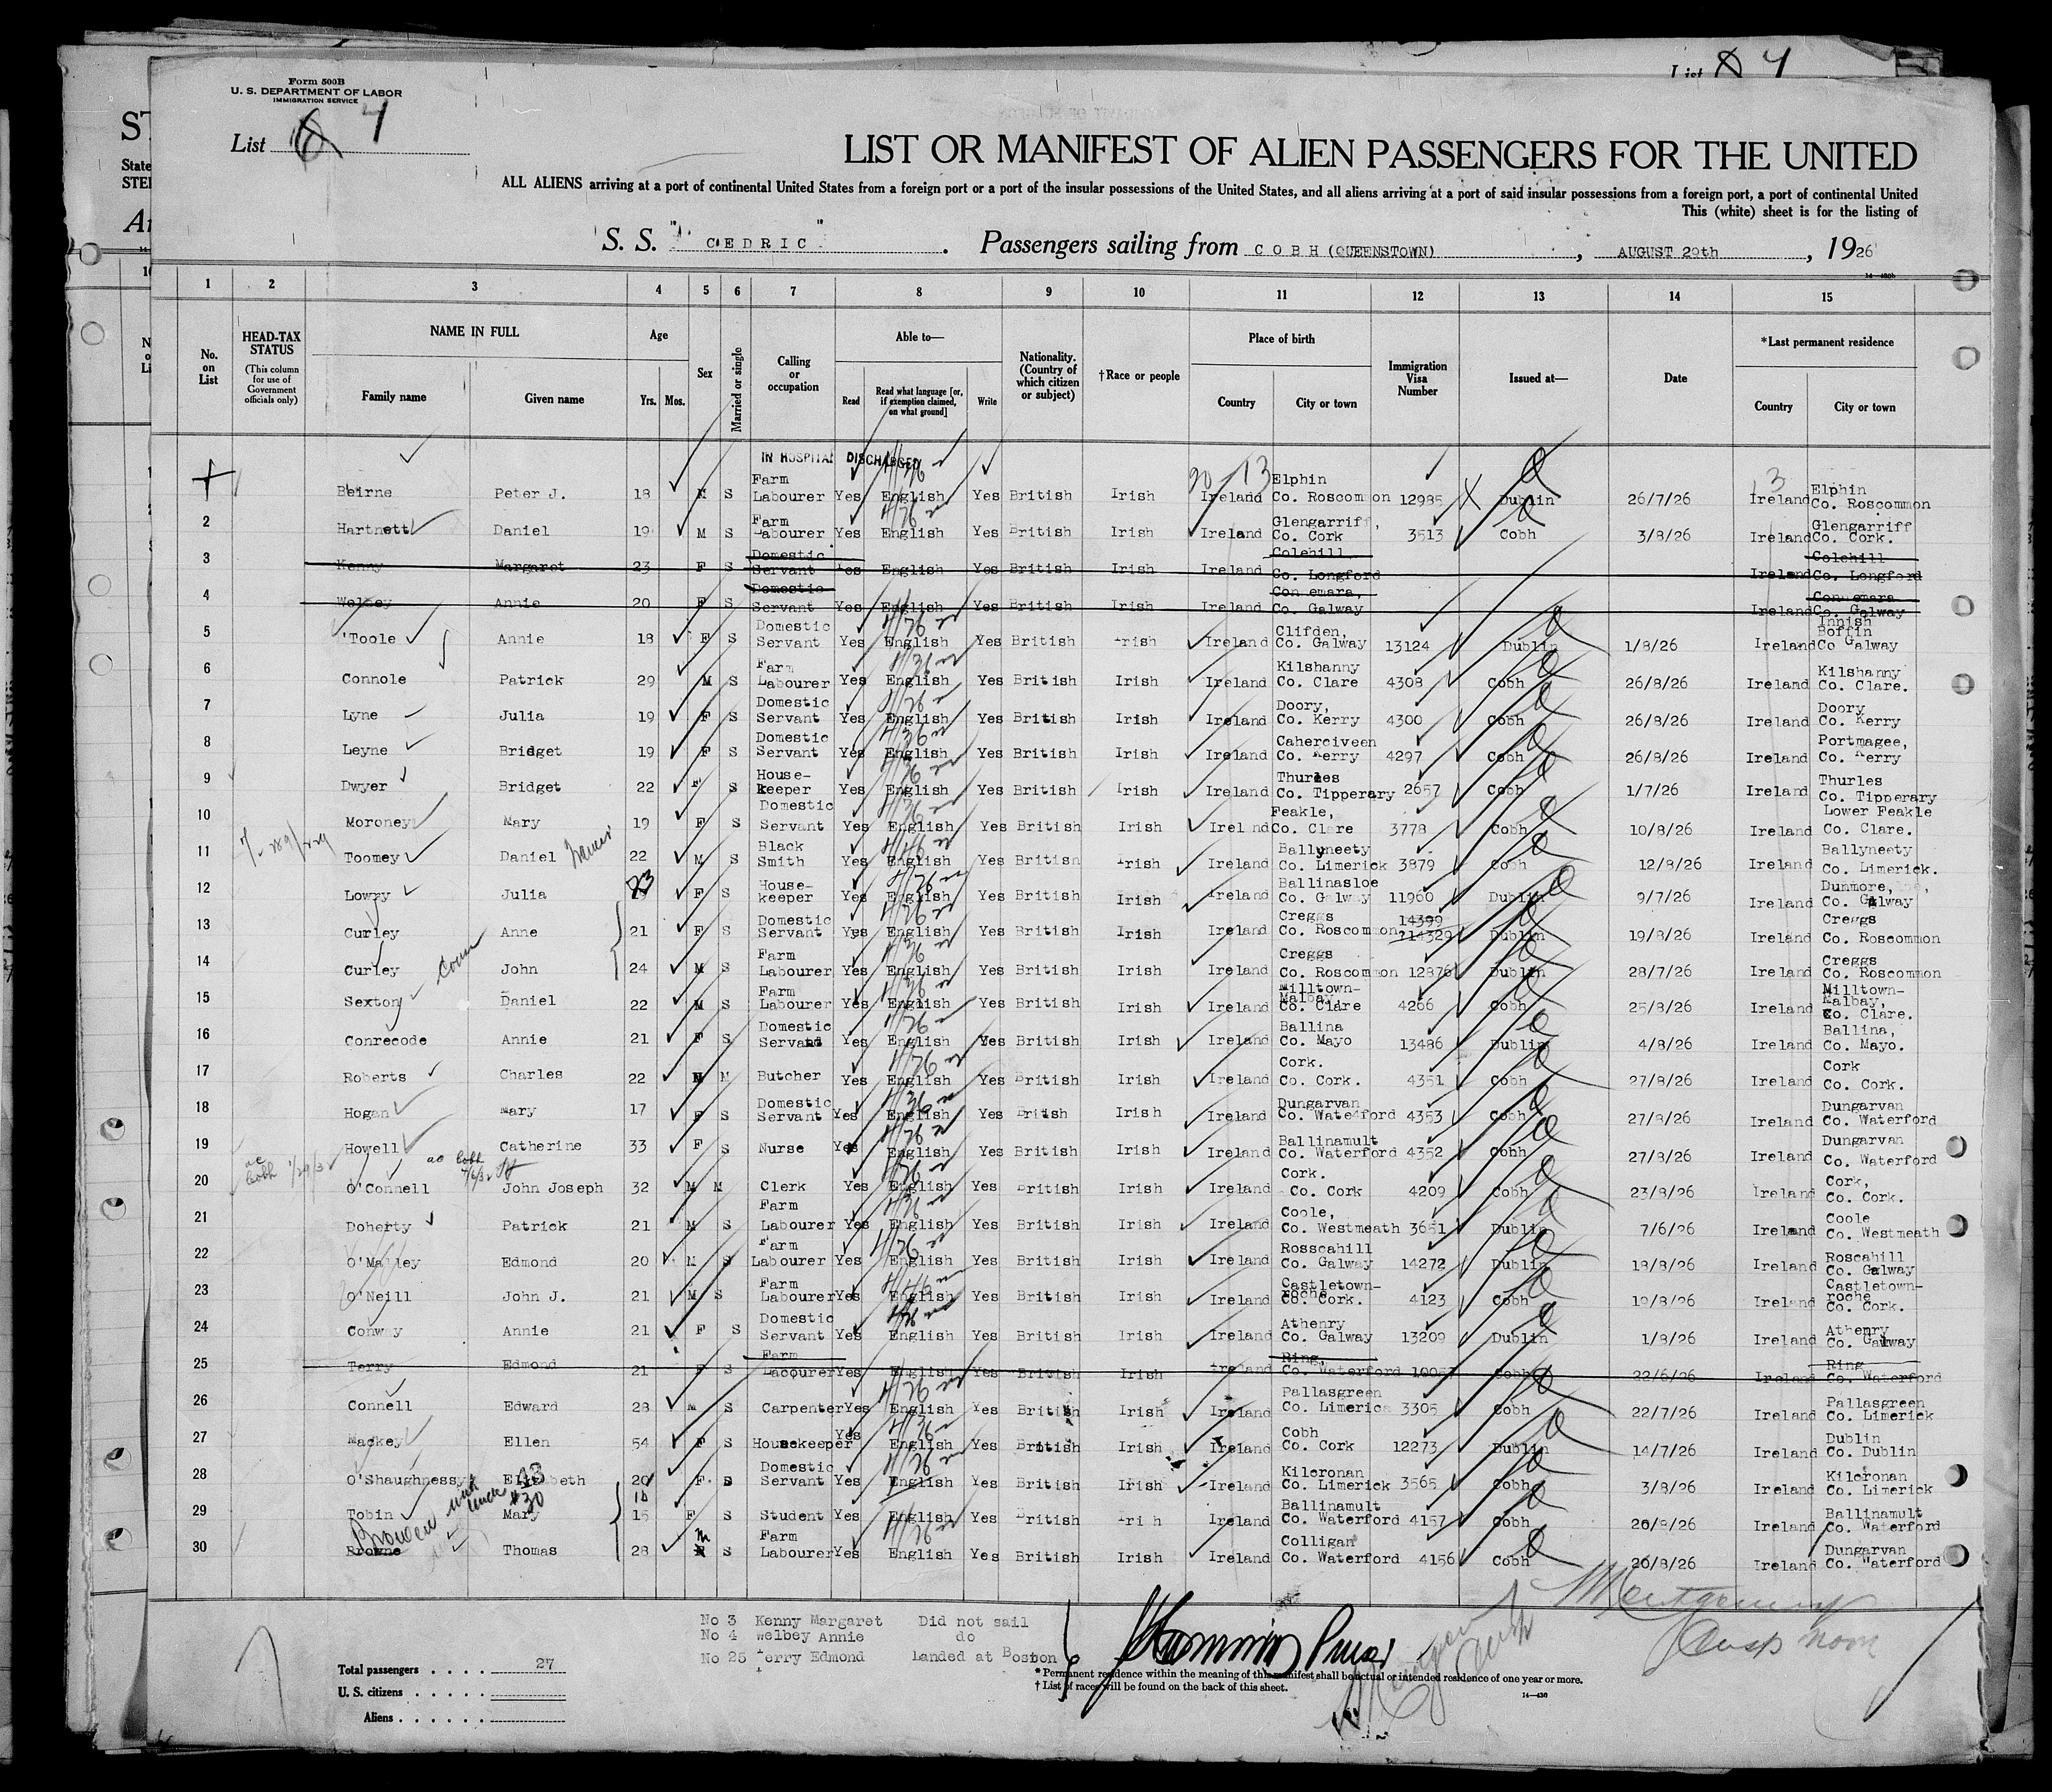 Form 500B
U. S. DEPARTMENT OF LABOR
IMMIGRATION SERVICE
List 4
List 4
LIST OR MANIFEST OF ALIEN PASSENGERS FOR THE UNITED
ALL ALIENS arriving at a port of continental United States from a foreign port or a port of the insular possessions of the United States, and all aliens arriving at a port of said insular possessions from a foreign port, a port of continental United
This (white) sheet is for the listing of
S. S. "CEDRIC". Passengers sailing from COBH (QUEENSTOWN), AUGUST 29th, 1926
1 2 3 4 5 6 7 8 9 10 11 12 13 14 15
No. on List
HEAD-TAX STATUS (This column for use of Government officials only)
NAME IN FULL
Family name Given name
Age
Yrs. Mos.
Sex
Married or single
Calling or occupation
Able to—
Read Read what language [or, if exemption claimed, on what ground] Write
Nationality. (Country of which citizen or subject)
†Race or people
Place of birth
Country City or town
Immigration Visa Number
Issued at—
Date
*Last permanent residence
Country City or town
IN HOSPITAL DISCHARGED
Beirne Peter J. 18 M S Farm Labourer Yes English Yes British Irish Ireland Elphin Co. Roscommon 12985 Dublin 26/7/26 Ireland Elphin Co. Roscommon
2 Hartnett Daniel 19 M S Farm Labourer Yes English Yes British Irish Ireland Glengarriff, Co. Cork 3513 Cobh 3/8/26 Ireland Glengarriff Co. Cork.
3 Kenny Margaret 23 F S Domestic Servant Yes English Yes British Irish Ireland Colehill Co. Longford Ireland Colehill Co. Longford
4 Welbey Annie 20 F S Domestic Servant Yes English Yes British Irish Ireland Connemara, Co. Galway Ireland Connemara Co. Galway
5 'Toole Annie 18 F S Domestic Servant Yes English Yes British Irish Ireland Clifden, Co. Galway 13124 Dublin 1/8/26 Ireland Innish Boffin Co Galway
6 Connole Patrick 29 M S Farm Labourer Yes English Yes British Irish Ireland Kilshanny Co. Clare 4308 Cobh 26/8/26 Ireland Kilshanny Co. Clare.
7 Lyne Julia 19 F S Domestic Servant Yes English Yes British Irish Ireland Doory, Co. Kerry 4300 Cobh 26/8/26 Ireland Doory Co. Kerry
8 Leyne Bridget 19 F S Domestic Servant Yes English Yes British Irish Ireland Caherciveen Co. Kerry 4297 Cobh 26/8/26 Ireland Portmagee, Co. Kerry
9 Dwyer Bridget 22 F S House-keeper Yes English Yes British Irish Ireland Thurles Co. Tipperary 2657 Cobh 1/7/26 Ireland Thurles Co. Tipperary
10 Moroney Mary 19 F S Domestic Servant Yes English Yes British Irish Ireland Feakle, Co. Clare 3778 Cobh 10/8/26 Ireland Lower Feakle Co. Clare.
11 Toomey Daniel 22 M S Black Smith Yes English Yes British Irish Ireland Ballyneety Co. Limerick 3879 Cobh 12/8/26 Ireland Ballyneety Co. Limerick.
12 Lowry Julia 23 F S House-keeper Yes English Yes British Irish Ireland Ballinasloe Co. Galway 11960 Dublin 9/7/26 Ireland Dunmore, Co. Galway
13 Curley Anne 21 F S Domestic Servant Yes English Yes British Irish Ireland Creggs Co. Roscommon 14399 14329 Dublin 19/8/26 Ireland Creggs Co. Roscommon
14 Curley John 24 M S Farm Labourer Yes English Yes British Irish Ireland Creggs Co. Roscommon 12876 Dublin 28/7/26 Ireland Creggs Co. Roscommon
15 Sexton Daniel 22 M S Farm Labourer Yes English Yes British Irish Ireland Milltown-Malbay, Co. Clare 4266 Cobh 25/8/26 Ireland Milltown-Malbay, Co. Clare.
16 Conrecode Annie 21 F S Domestic Servant Yes English Yes British Irish Ireland Ballina Co. Mayo 13486 Dublin 4/8/26 Ireland Ballina, Co. Mayo.
17 Roberts Charles 22 M M Butcher Yes English Yes British Irish Ireland Cork. Co. Cork. 4351 Cobh 27/8/26 Ireland Cork Co. Cork.
18 Hogan Mary 17 F S Domestic Servant Yes English Yes British Irish Ireland Dungarvan Co. Waterford 4353 Cobh 27/8/26 Ireland Dungarvan Co. Waterford
19 Howell Catherine 33 F S Nurse Yes English Yes British Irish Ireland Ballinamult Co. Waterford 4352 Cobh 27/8/26 Ireland Dungarvan Co. Waterford
20 O'Connell John Joseph 32 M M Clerk Yes English Yes British Irish Ireland Cork. Co. Cork 4209 Cobh 23/8/26 Ireland Cork, Co. Cork.
21 Doherty Patrick 21 M S Farm Labourer Yes English Yes British Irish Ireland Coole, Co. Westmeath 3651 Dublin 7/6/26 Ireland Coole Co. Westmeath
22 O'Malley Edmond 20 M S Farm Labourer Yes English Yes British Irish Ireland Rosscahill Co. Galway 14272 Dublin 18/8/26 Ireland Roscahill Co. Galway
23 O'Neill John J. 21 M S Farm Labourer Yes English Yes British Irish Ireland Castletown-roche Co. Cork. 4123 Cobh 19/8/26 Ireland Castletown-roche Co. Cork.
24 Conway Annie 21 F S Domestic Servant Yes English Yes British Irish Ireland Athenry Co. Galway 13209 Dublin 1/8/26 Ireland Athenry Co. Galway
25 Terry Edmond 21 F S Farm Labourer Yes English Yes British Irish Ireland Ring, Co. Waterford Cobh 22/6/26 Ireland Ring Co. Waterford
26 Connell Edward 28 M S Carpenter Yes English Yes British Irish Ireland Pallasgreen Co. Limerick 3305 Cobh 22/7/26 Ireland Pallasgreen Co. Limerick
27 Mackey Ellen 54 F S Housekeeper Yes English Yes British Irish Ireland Cobh Co. Cork 12273 Dublin 14/7/26 Ireland Dublin Co. Dublin
28 O'Shaughnessy Elizabeth 20 F. S Domestic Servant Yes English Yes British Irish Ireland Kilcronan Co. Limerick 3565 Cobh 3/8/26 Ireland Kilcronan Co. Limerick
29 Tobin Mary 15 F S Student Yes English Yes British Irish Ireland Ballinamult Co. Waterford 4157 Cobh 20/8/26 Ireland Ballinamult Co. Waterford
30 Browne Thomas 28 M S Farm Labourer Yes English Yes British Irish Ireland Colligan Co. Waterford 4156 Cobh 20/8/26 Ireland Dungarvan Co. Waterford
No 3 Kenny Margaret Did not sail
No 4 Welbey Annie do
No 25 Terry Edmond Landed at Boston
Total passengers . . . . 27
U. S. citizens . . . . .
Aliens . . . . . .
* Permanent residence within the meaning of this manifest shall be actual or intended residence of one year or more.
† List of races will be found on the back of this sheet.
14—430